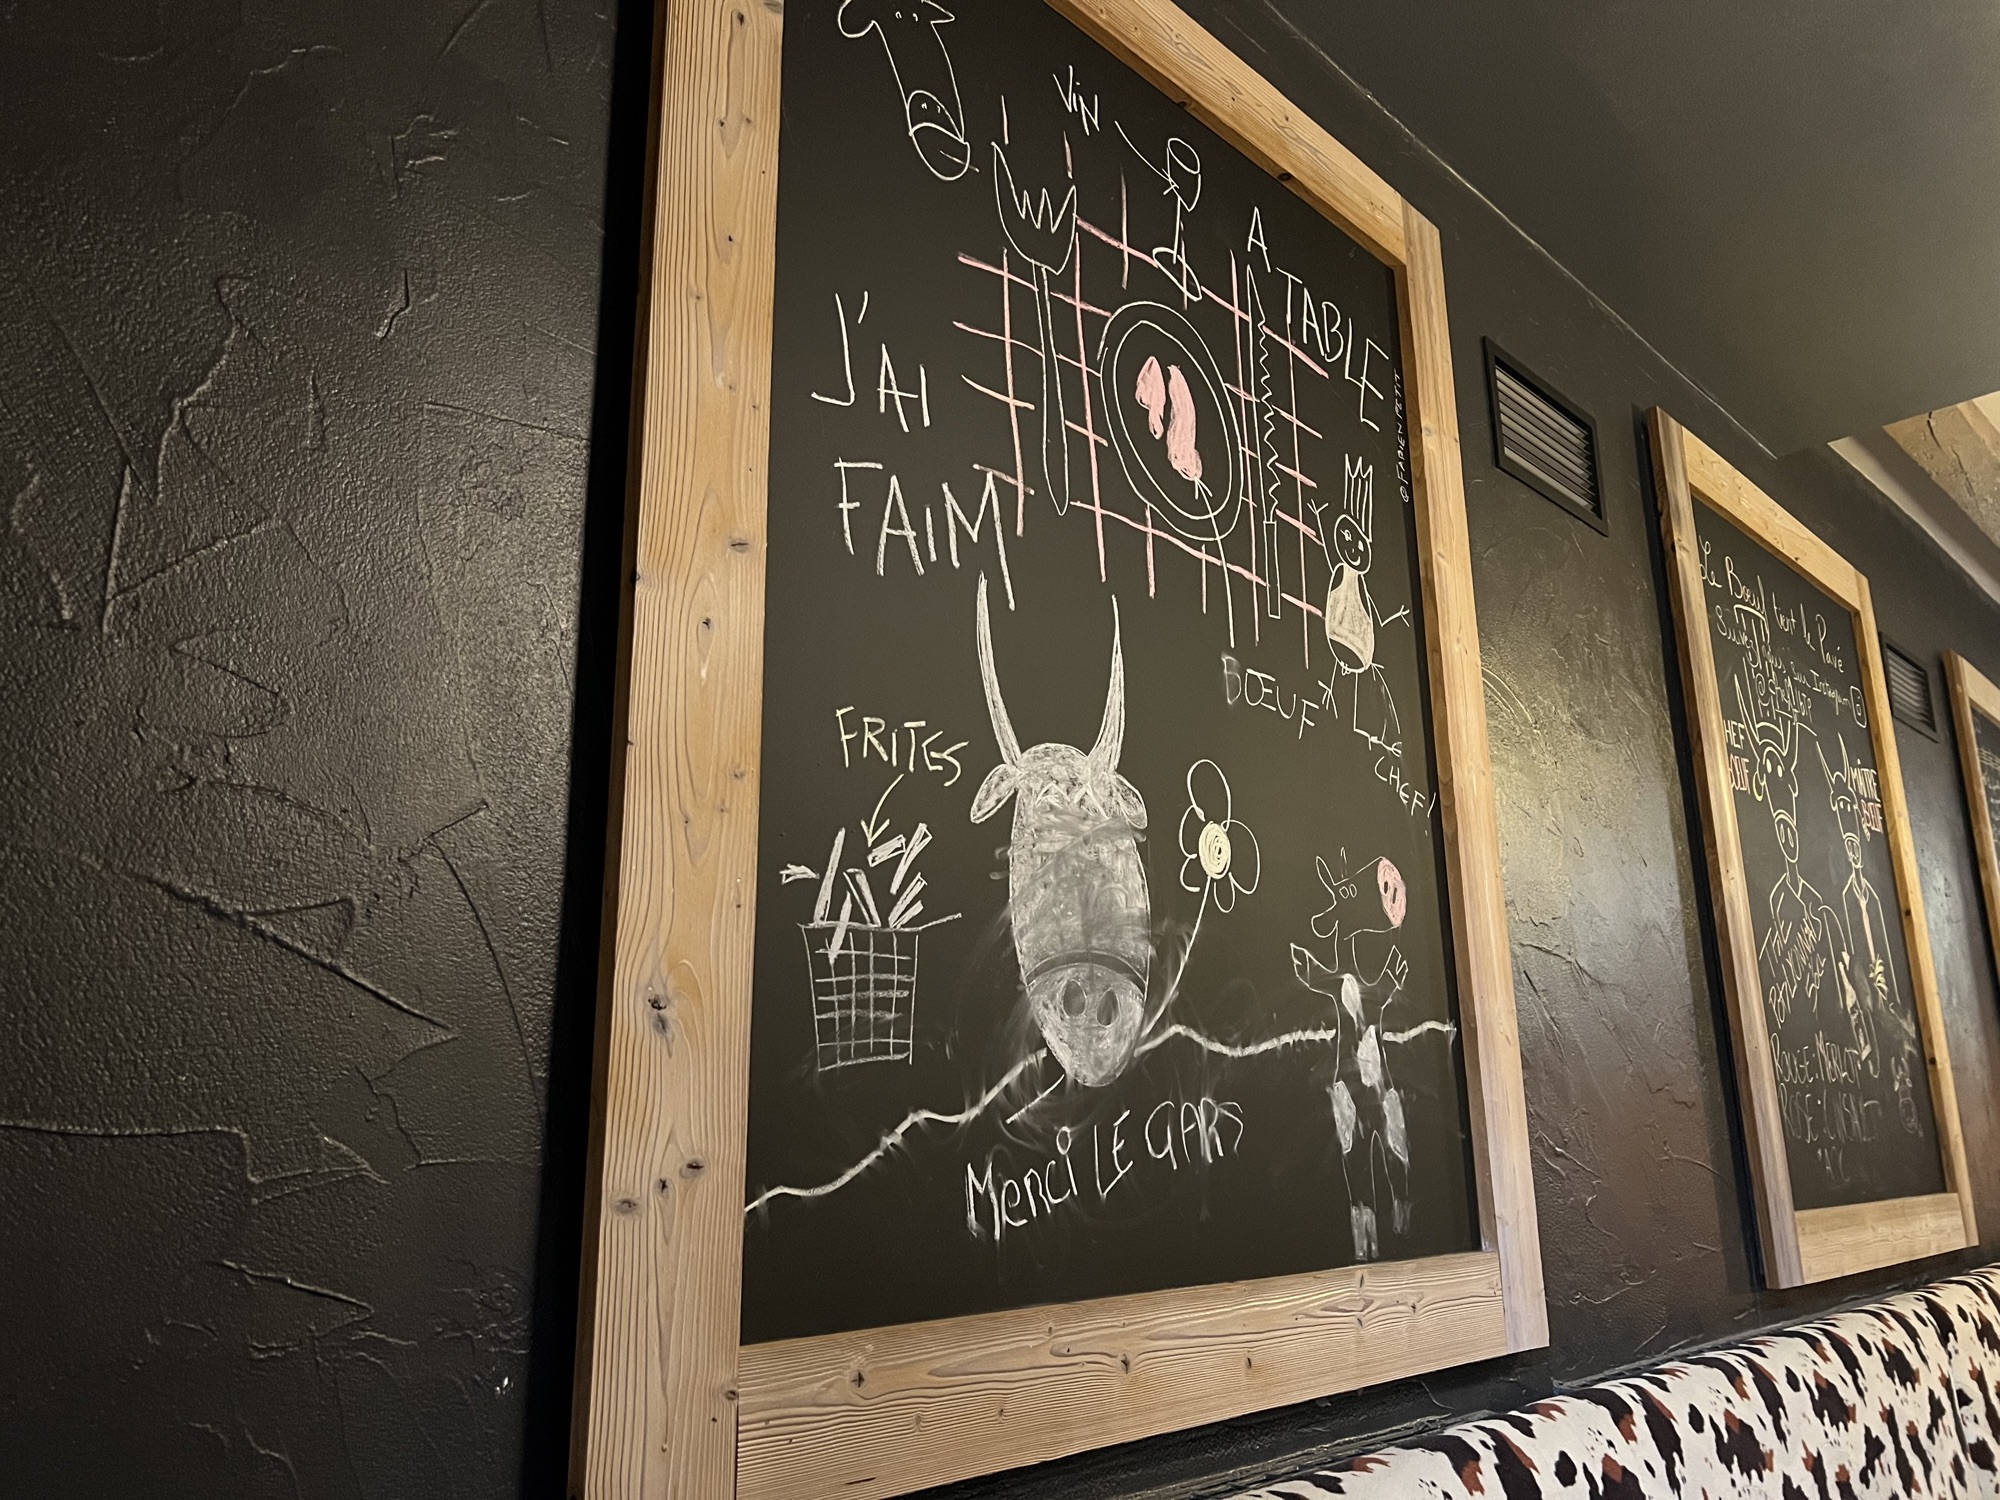 VIN
A TABLE
J'AI
FAIM
@FABIENPETIT
BŒUF
LE
CHEF!
FRITES
MERCI LE GARS
Le Bœuf tient le Pavé
Suivez
sur Instagram
CHEF
BOEUF
MAÎTRE
BŒUF
THE
ROUGE: MERLOT
ROSÉ: CINSAULT